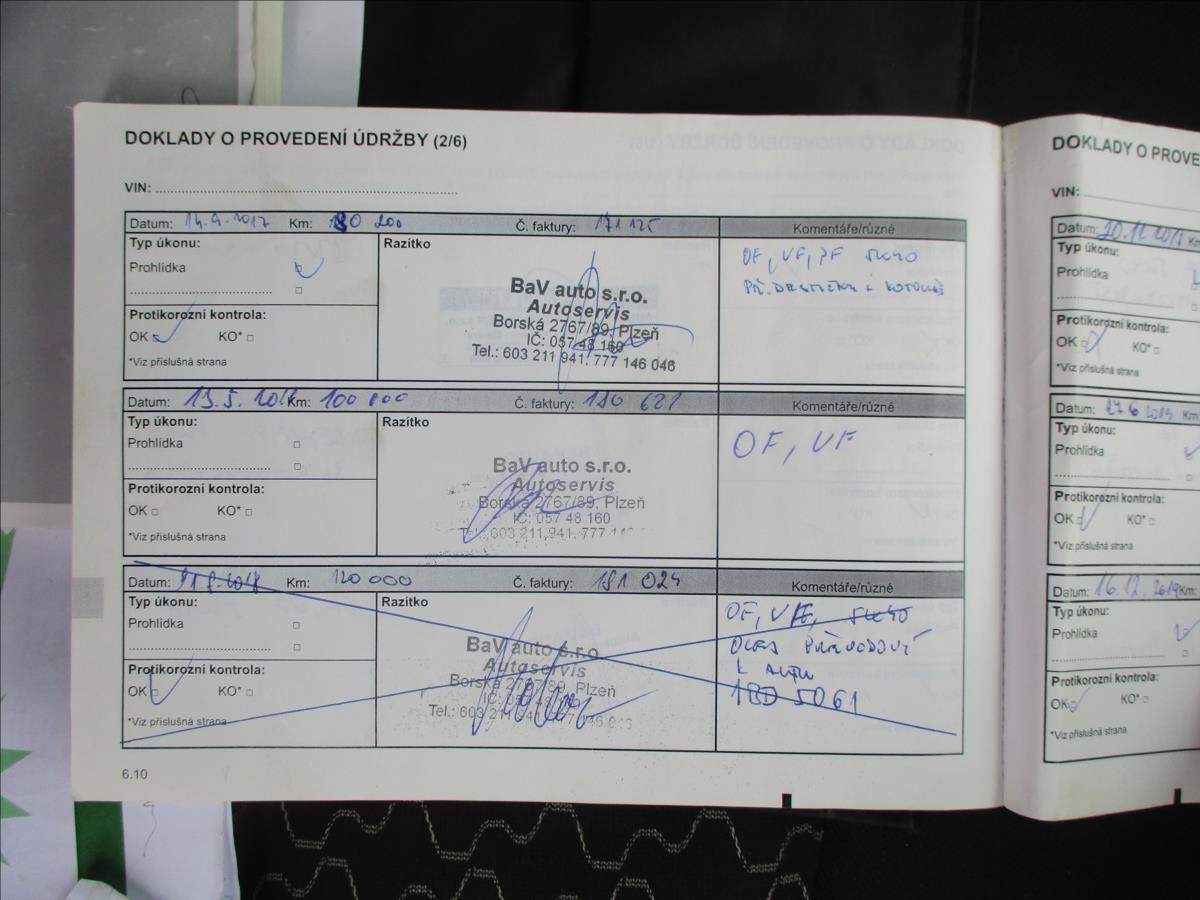 DOKLADY O PROVEDENÍ ÚDRŽBY (2/6)
VIN:
Datum: 14.9.2017 Km: 80 200 Č. faktury: 171 125 Komentáře/různé
Typ úkonu: Razítko
Prohlídka
OF, VF, PF
BaV auto s.r.o.
Autoservis
Borská 2767/89, Plzeň
IČ: 057 48 160
Tel.: 603 211 941, 777 146 046
Protikorozní kontrola:
OK KO*
*Viz příslušná strana
Datum: 15.5. Km: 100 000 Č. faktury: 180 621 Komentáře/různé
Typ úkonu: Razítko
Prohlídka
OF, VF
BaV auto s.r.o.
Autoservis
Borská 2767/89, Plzeň
IČ: 057 48 160
Tel.: 603 211 941, 777
Protikorozní kontrola:
OK KO*
*Viz příslušná strana
Datum: Km: 120 000 Č. faktury: 181 024 Komentáře/různé
Typ úkonu: Razítko
Prohlídka
OF,
K AUTU
5061
BaV auto s.r.o.
Autoservis
Borská 2767/89, Plzeň
Protikorozní kontrola:
OK KO*
*Viz příslušná strana
6.10
DOKLADY O PROVE
VIN:
Datum: Km
Typ úkonu:
Prohlídka
Protikorozní kontrola:
OK KO*
*Viz příslušná strana
Datum: 27.6 2019 Km:
Typ úkonu:
Prohlídka
Protikorozní kontrola:
OK KO*
*Viz příslušná strana
Datum: 16.12.2019 Km:
Typ úkonu:
Prohlídka
Protikorozní kontrola:
OK KO*
*Viz příslušná strana